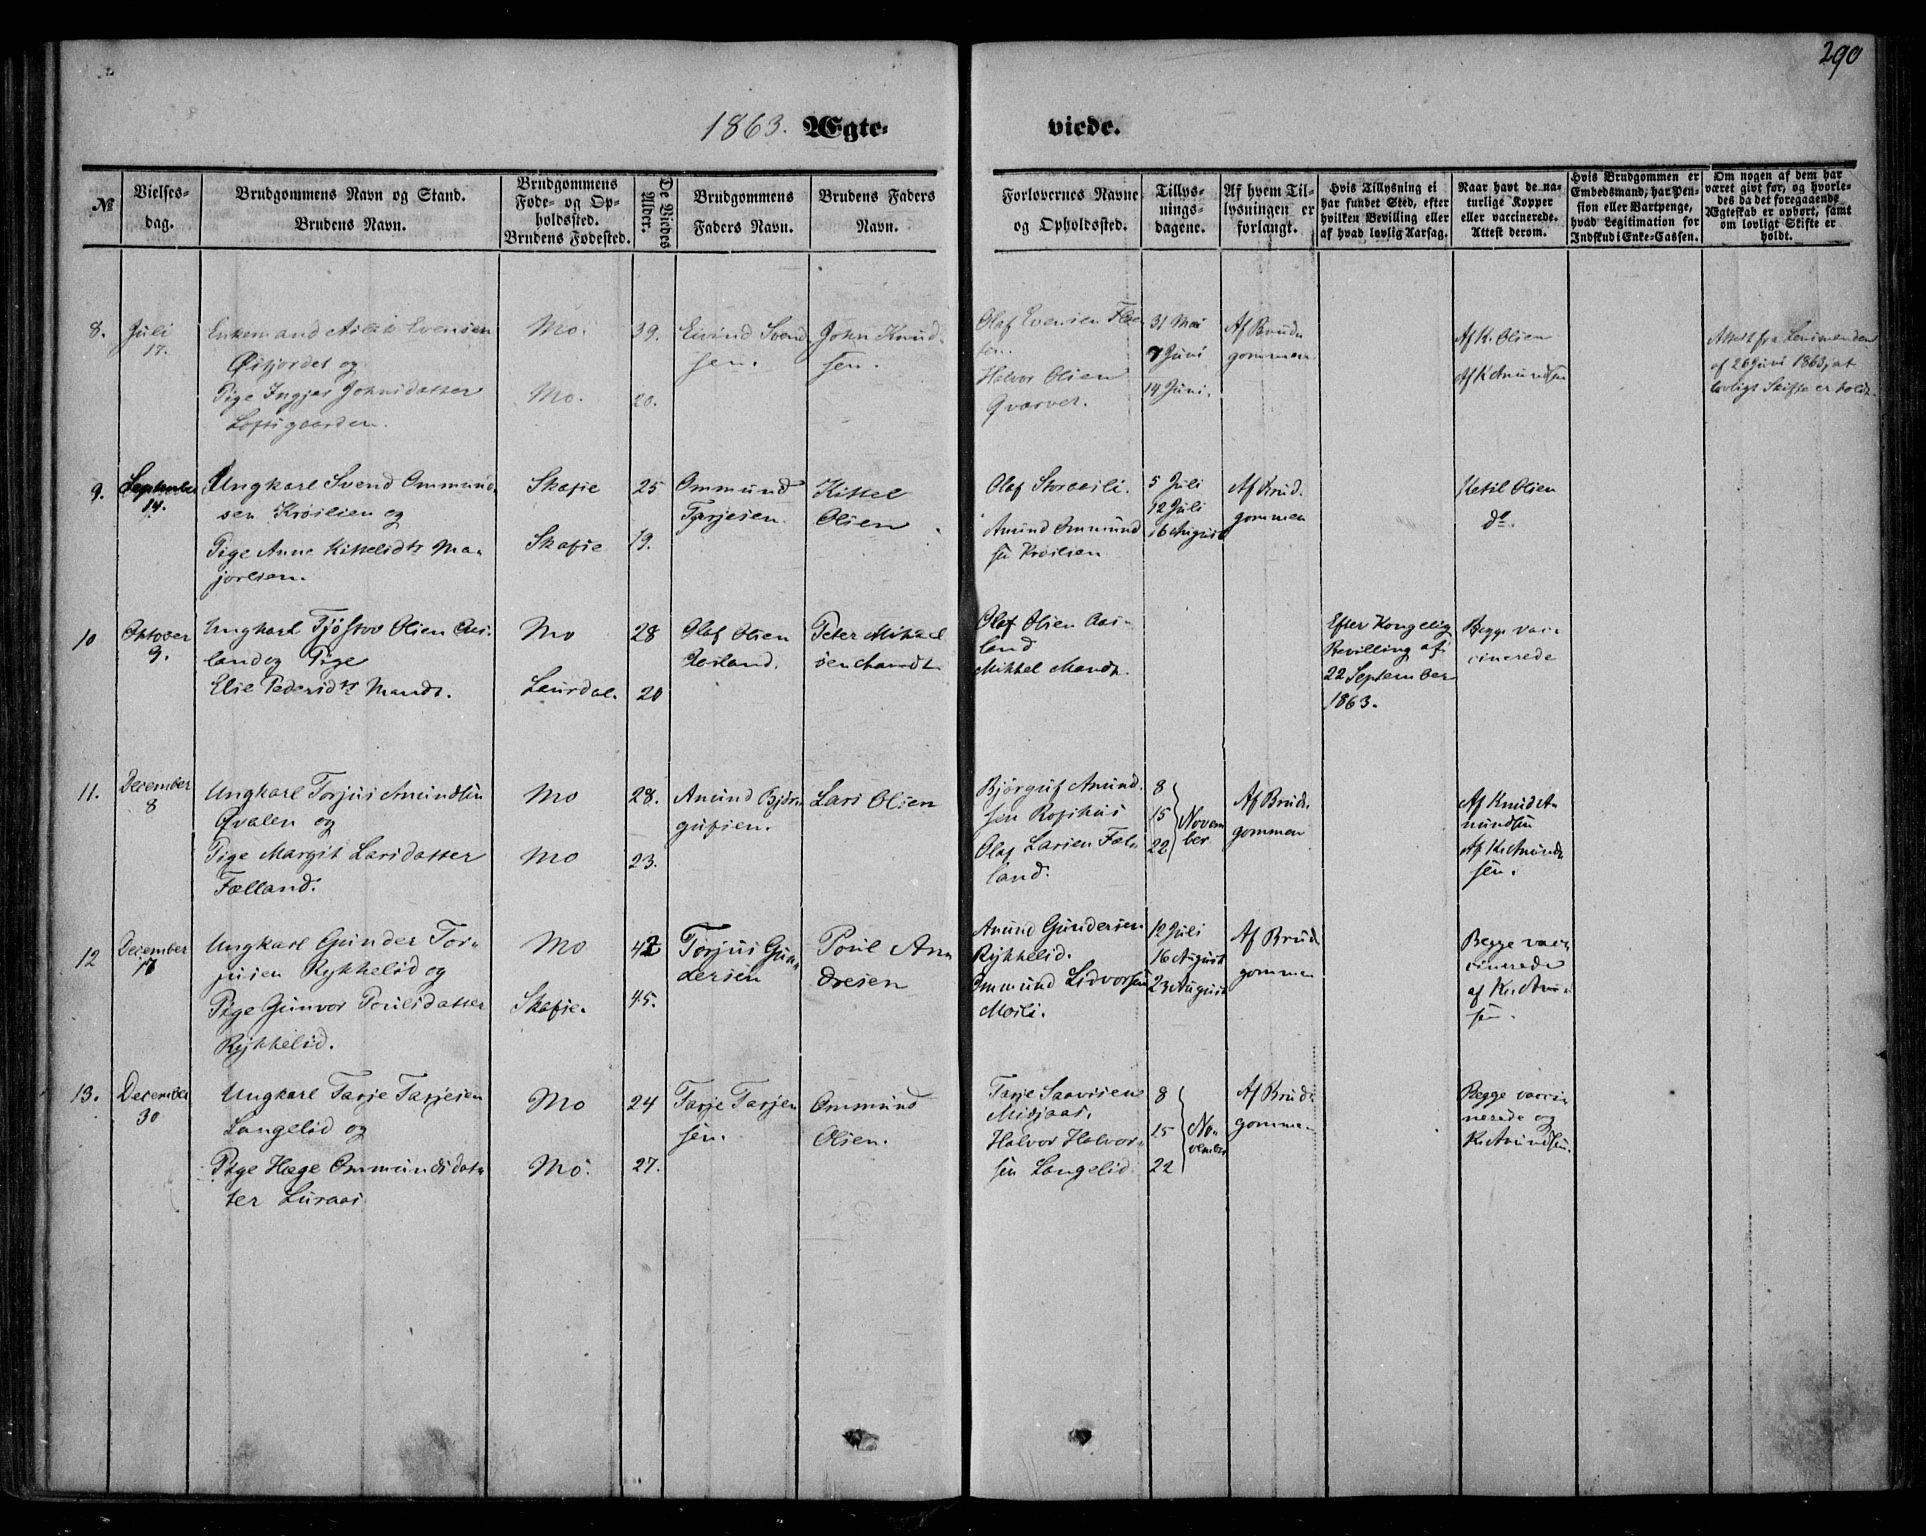 290
1863. Ægte- viede.
№
Vielses-
dag.
Brudgommens Navn og Stand.
Brudens Navn.
Brudgommens
Føde- og Op-
holdssted.
Brudens Fødested.
De Viedes
Alder.
Brudgommens
Faders Navn.
Brudens Faders
Navn.
Forlovernes Navne
og Opholdssted.
Tillys-
nings-
dagene.
Af hvem Til-
lysningen er
forlangt.
Hvis Tillysning ei
har fundet Sted, efter
hvilken Bevilling eller
af hvad lovlig Aarsag.
Naar havt de na-
turlige Kopper
eller vaccinerede.
Attest derom.
Hvis Brudgommen er
Embedsmand, har Pen-
sion eller Vartpenge,
hvad Legitimation for
Indskud i Enke-Cassen.
Om nogen af dem har
været gift før, og hvorle-
des da det foregaaende
Ægteskab er ophørt, samt
om lovligt Skifte er
holdt.
8.
Juli
17.
Enkemand Evensen
Øifjordet og
Pige Ingjer Johnsdatter
Loftsgaarden.
Mo.
Mo.
39.
20.
Eivind Svend
sen.
John Knud-
sen.
Olaf Evensen
sen.
Halvor Olsen
Qvarver.
31 Mai
7 Juni
14 Juni.
Af Brud-
gommen
Af K. Olsen
Af K Amundsen
Attest fra Lensmanden
af 26 Juni 1863, at
lovligt Skifte er holdt.
9.
September
14.
Ungkarl Svend Ommund-
sen Kroslien og
Pige Anne Kittelsdtr Ma-
jorlien.
Skafse
Skafse
25
19.
Ommund
Tarjesen.
Kittel
Olsen
Olaf Skraasli.
Amund Ommund
sen Kroslien
5 Juli
12 Juli
16 August
Af Brud-
gommen
Ketil Olsen
do.
10
Oktober
9.
Ungkarl Tjøstov Olsen Aas-
land og Pige
Else Pedersdtr Mandt.
Mo
Laurdal.
28
20
Olaf Olsen
Aasland.
Peter Mikkel
sen Mandt.
Olaf Olsen Aas-
land
Mikkel Mandt.
Efter Kongelig
Bevilling af
22 September
1863.
Begge vac-
cinerede
11.
December
8
Ungkarl Torjus Amundsen
Qvalen og
Pige Margit Larsdatter
Fælland.
Mo
Mo
28.
23.
Amund Bjørn
gufsen.
Lars Olsen
Bjørguf Amund-
sen Rofshus
Olaf Larsen Fæl-
land.
8
15
22
Novem
ber
Af Brud-
gommen
Af Knud A-
mundsen
Af K. Amund
sen.
12
December
17
Ungkarl Gunder Tor-
jusen Rykkelid og
Pige Gunvor Poulsdatter
Rykkelid.
Mo
Skafse.
42
45.
Torjus Gun-
dersen
Poul An-
dresen
Amund Gundersen
Rykkelid.
Ommund Lidvorsen
Mosli.
12 Juli
16 August
23 August
Af Brud
gommen
Begge vac-
cinerede
af K. Amund
sen.
13.
December
30
Ungkarl Tarje Tarjesen
Langelid og
Pige Hæge Ommundsdat-
ter Luraas
Mo
Mo.
24
27.
Tarje Tarjen
sen.
Ommund
Olsen.
Tarje Saavesen
Midjaas.
Halvor Halvor-
sen Langelid.
8
15
22
No-
vember
Af Brud-
gommen
Begge vacci-
nerede og
K. Amundsen.